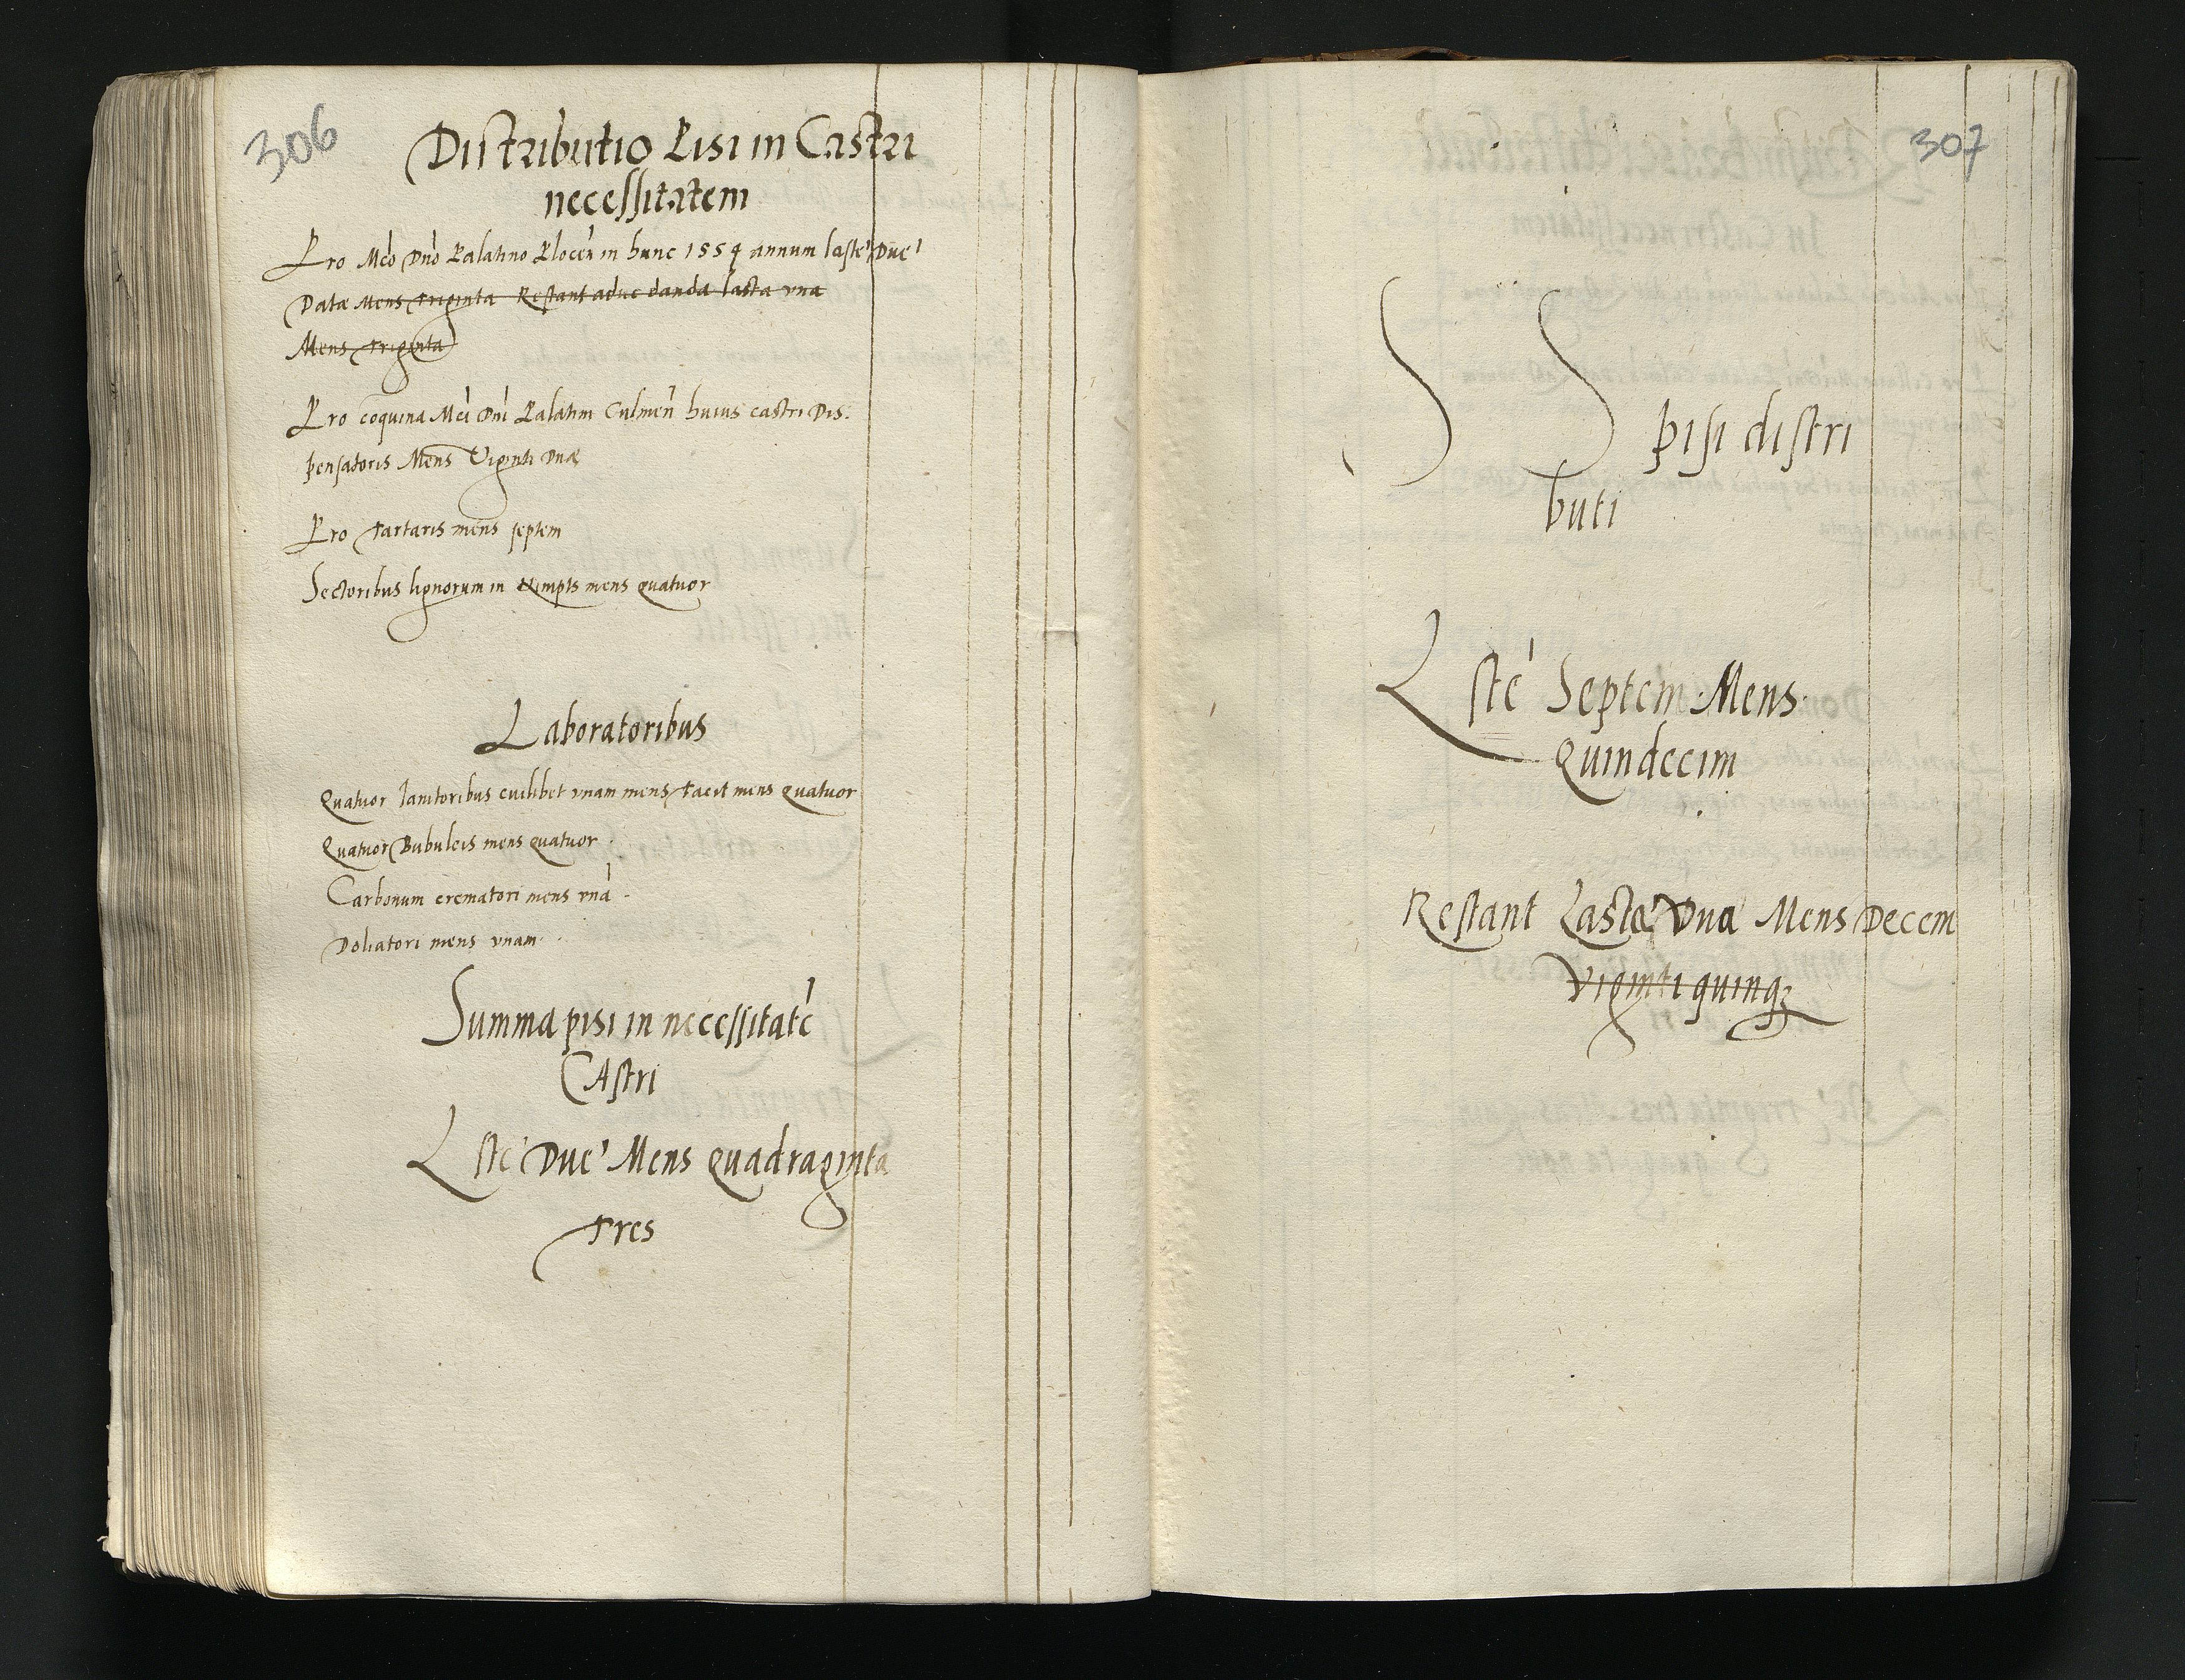 306
Distributio Pisi in Castri
necessitatem
Pro Mco Dno Palatino Plocen in hunc 1554 annum laste Due
Datæ Mens triginta Restant aduc danda lasta vna
Mens triginta
Pro coquina Mci Dni Palatini Culmen huius castri Dis:
pensatoris Mens Viginti Duæ
Pro Tartaris mens septem
Sectoribus lignorum in mens quatuor
Laboratoribus
Quatuor Ianitoribus cuilibet vnam mens facit mens quatuor
Quatuor Bubulcis mens quatuor
Carbonum crematori mens vna
Doliatori mens vnam
Summa pisi in necessitate
CAstri
Lste Due Mens Quadraginta
tres
307
SS pisi distri
buti
Lste Septem Mens
Quindecim
Restant Lastæ Dua Mens Decem
Viginti quinqz